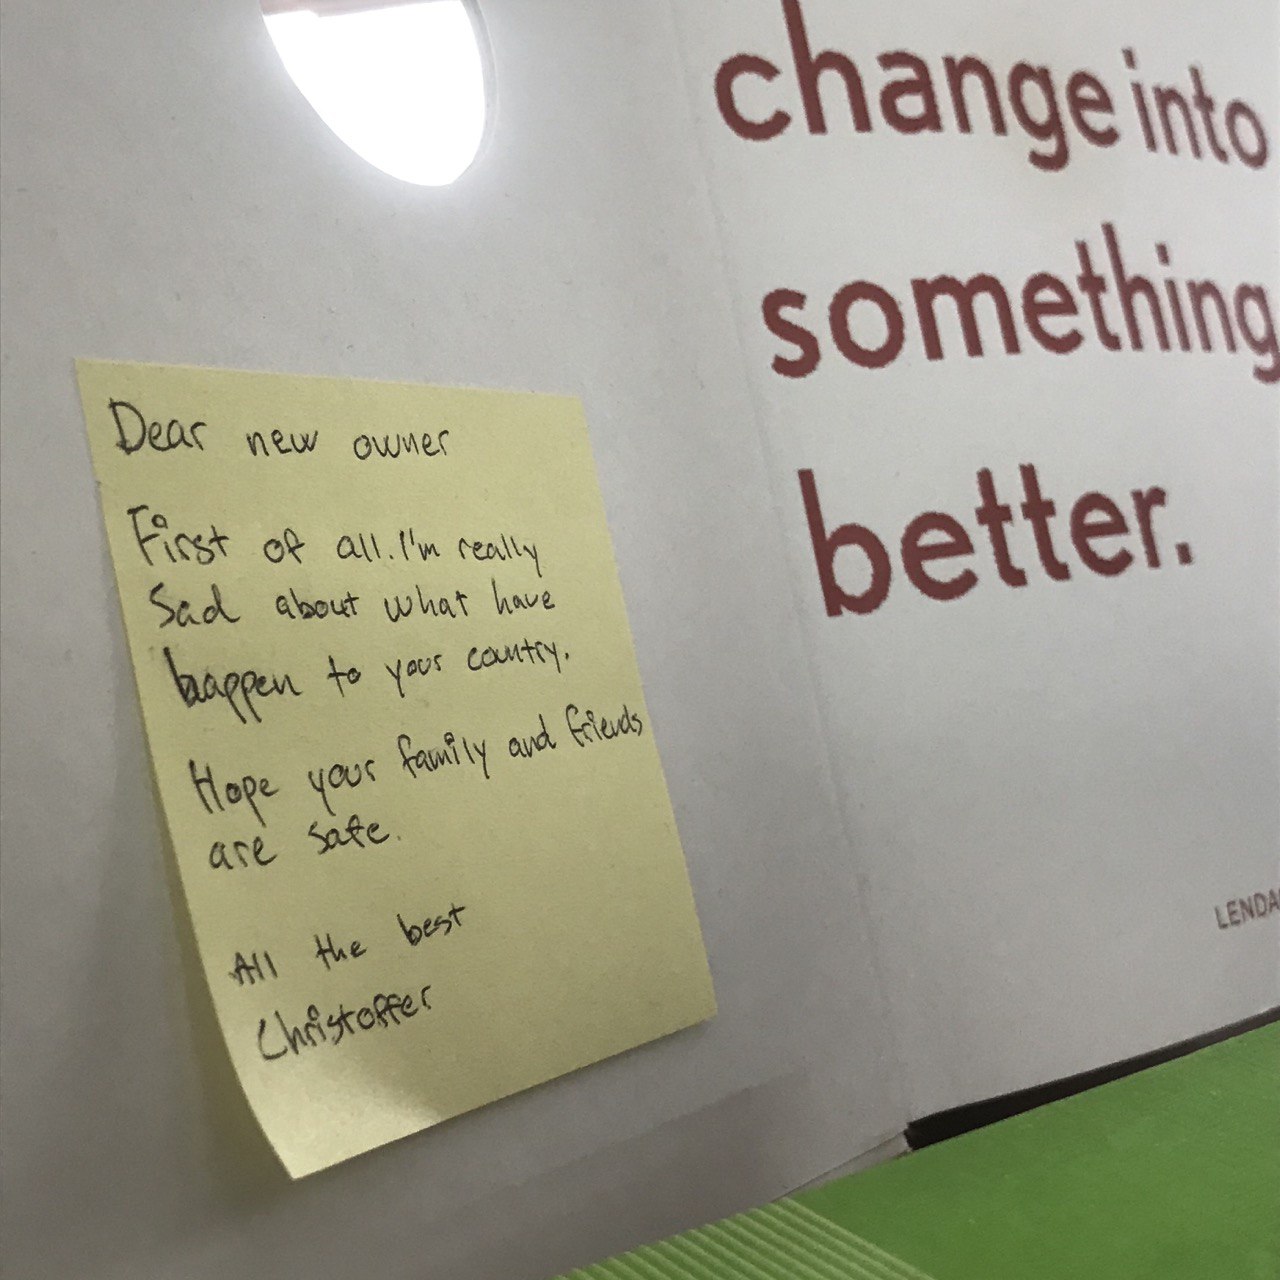 Dear new owner
First of all. I'm really
Sad about what have
happen to your country.
Hope your family and friends
are safe.
All the best
Christoffer
change into
something
better.